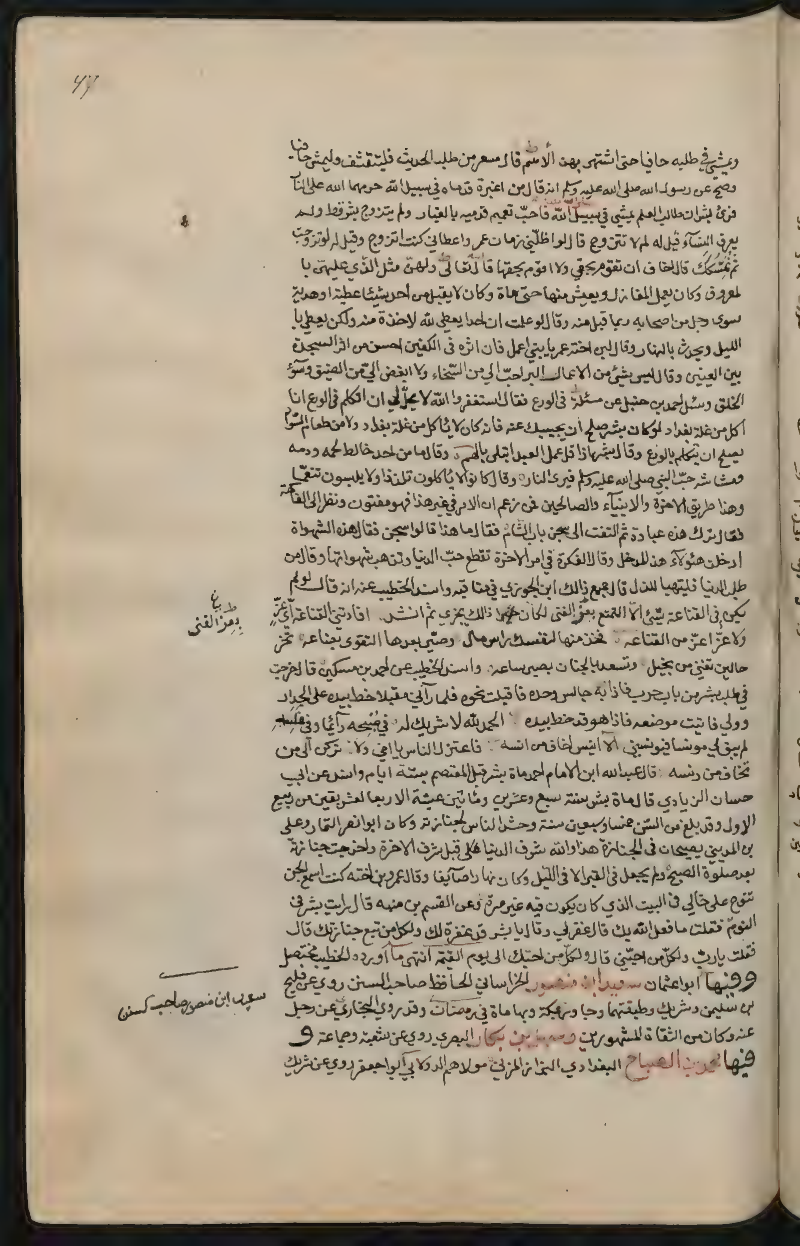 ويمشي في طلبه حافيا حتى اشتهر بهذا الاسم قال مسعر من طلب الحديث فليتقشف وليمش حافيا
وصح عن رسول الله صلى الله عليه وسلم انه قال من اغبرة قدماه في سبيل الله حرمهما الله على النار
فرئ بشر ان طالب العلم يمشي في سبيل الله فاحب تعميم قدميه بالغبار ولم يتزوج بشر قط ولم
يعرف النساء قيل له لم لا تتزوج قال لو اظلني زمان عمر واعطاني كنت اتزوج وقيل له لو تزوجت
ثم نسكك قال اخاف ان تقوم بحقي ولا اقوم بحقها قال تعالى ولهن مثل الذي عليهن با
لمعروف وكان يعمل المغازل ويعيش منها حتى ماة وكان لا يقبل من احد شيئا عطية او هدية
سوى رجل من اصحابه ربما قبل منه وقال لو علمت ان احدا يعطي لله لاخذة منه ولكن يعطي با
الليل ويحدث بالنهار وقال لابن اخته عمر يا بني اعمل فان اثره في الكفين احسن من اثر السجدة
بين العينين وقال ليس شيئ من الاعمال البر احب الي من السخاء ولا ابغض الي من الضيق وسوء
الخلق وسئل احمد بن حنبل عن مسئلة في الورع فقال استغفروا الله لا يحل لي ان اتكلم في الورع انا
اكل من غلة بغداد لو كان بشر صلح ان يجيبك عنه فانه كان لا ياكل من غلة بغداد ولا من طعام السواد
يصلح ان يتكلم بالورع وقال بشر اذا قل عمل العبد ابتلي بالهم وقال ما من احد خالط لحمه ودمه
ومشاشه حب النبي صلى الله عليه وسلم فيرى النار وقال كانوا لا ياكلون تلذذا ولا يلبسون تنعما
وهذا طريق الاخرة والانبياء والصالحين فمن زعم ان الامر في غير هذا فهو مفتون ونظر الى الفاكهة
فقال ترك هذه عبادة ثم التفت الى سجن باب الشام فقال ما هذا قالوا سجن فقال هذه الشهواة
ادخلن هئولاء هذا المدخل وقال الفكرة في امر الاخرة تقطع حب الدنيا وتذهب شهواتها وقال من
طلب الدنيا فليتهيا للذل قال جمع ذالك ابن الجوزي في مناقبه واسند الخطيب عنه انه قال لو لم
يكن في القناعة شئ الا التمتع بعز الغنى لكان ذالك يجزي ثم انشد افادتني القناعة اي عز
ولا عزا اعز من القناعة فخذ منها لنفسك راس مال وصير بعدها التقوى بضاعة تحز
حالين تغنى من بخيل وتسعد بالجنان بصبر ساعة واسند الخطيب عن احمد بن مسكين قال خرجت
في طلب بشر من باب حرب فاذا به جالس وحده فاقبلت نحوه فلما رآني مقبلا خط بيده على الجدار
وولى فاتيت موضعه فاذا هو قد خط بيده الحمد لله لا شريك له في صبحه دائما وفي غلسه
لم يبق لي مونسا فيونسني الا انيس اخاف من انسه فاعتزل الناس يا اخي ولا تركن الى من
تخاف من دنسه قال عبد الله ابن الامام احمد ماة بشر قبل المعتصم بستة ايام واسند عن ابي
حسان الزيادي قال ماة بشر سنة سبع وعشرين ومائتين عشية الاربعا لعشر بقين من ربيع
الاول وقد بلغ من السن خمسا وسبعين سنة وحشد الناس لجنازته وكان ابو نصر التمار وعلي
بن المديني يصيحان في الجنازة هذا والله شرف الدنيا قبل شرف الاخرة واخرجت جنازته
بعد صلوة الصبح ولم يجعل في القبر الا في الليل وكان نهارا صائفا وقال عمر بن اخته كنت اسمع الجن
تنوح على خالي في البيت الذي كان يكون فيه غير مرة وعن القسم بن منبه قال رايت بشر في
النوم فقلت ما فعل الله بك قال غفر لي وقال يا بشر قد غفرة لك ولكل من تبع جنازتك قال
فقلت يا رب ولكل من احبني قال ولكل من احبك الى يوم القيمة انتهى ما اورده الخطيب مختصرا
وفيها ابو عثمان سعيد ابن منصور الخراساني الحافظ صاحب السنن روى عن فليح
بن سليمن وشريك وطبقتهما وجاور بمكة وبها ماة في رمضان وقد روى البخاري عن رجل
عنه وكان من الثقاة المشهورين وسهيل بن بكار البصري روى عن شعبة وجماعة و
فيها محمد بن الصباح البغدادي البزاز المزني مولاهم الدولابي ابو جعفر روى عن شريك
بعز الغنى
سعيد ابن منصور صاحب السنن